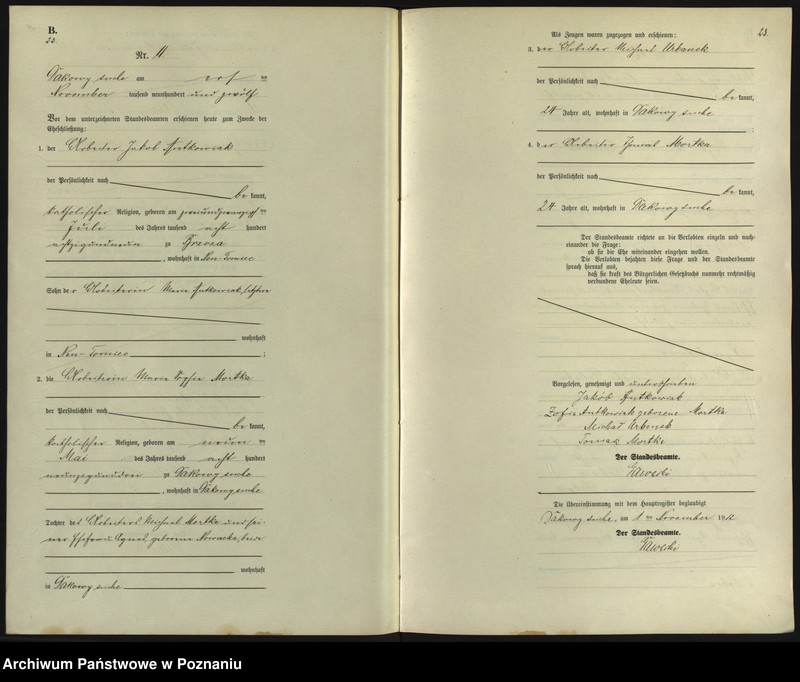 B.
22.
Nr. 11
Ptakowy suche am erf ten
November tausend neunhundert und zwölf
Vor dem unterzeichneten Standesbeamten erschienen heute zum Zwecke der
Eheschließung:
1. der Arbeiter Jakob Antkowiak
der Persönlichkeit nach
be kannt,
katholischer Religion, geboren am zweiundzwanzigsten
Juli des Jahres tausend acht hundert
achtzigundneun zu
, wohnhaft in Neu-Tomice
Sohn der Arbeiterin Marie Antkowiak,
wohnhaft
in Neu-Tomice ;
2. die Arbeiterin Marie Sophie Mortka
der Persönlichkeit nach
be kannt,
katholischer Religion, geboren am neunten
Mai des Jahres tausend acht hundert
neunzigunddrei zu suche
, wohnhaft in suche
Tochter des Arbeiters Michael Mortka und sei-
ner Ehefrau Agnes, geborene Nowacka, beide
wohnhaft
in suche
23.
Als Zeugen waren zugezogen und erschienen:
3. der Arbeiter Michael Urbanek
der Persönlichkeit nach
be kannt,
24 Jahre alt, wohnhaft in suche
;
4. der Arbeiter Mortka
der Persönlichkeit nach
be kannt,
24 Jahre alt, wohnhaft in suche
Der Standesbeamte richtete an die Verlobten einzeln und nach-
einander die Frage:
ob sie die Ehe miteinander eingehen wollen.
Die Verlobten bejahten diese Frage und der Standesbeamte
sprach hierauf aus,
daß sie kraft des Bürgerlichen Gesetzbuchs nunmehr rechtmäßig
verbundene Eheleute seien.
Vorgelesen, genehmigt und unterschrieben
Jakób Antkowiak
Zofia Antkowiak geborene Mortka
Michał Urbanek
Tomasz Mortka
Der Standesbeamte.
Die Übereinstimmung mit dem Hauptregister beglaubigt
suche, am 1 ten November 1912
Der Standesbeamte.
Archiwum Państwowe w Poznaniu